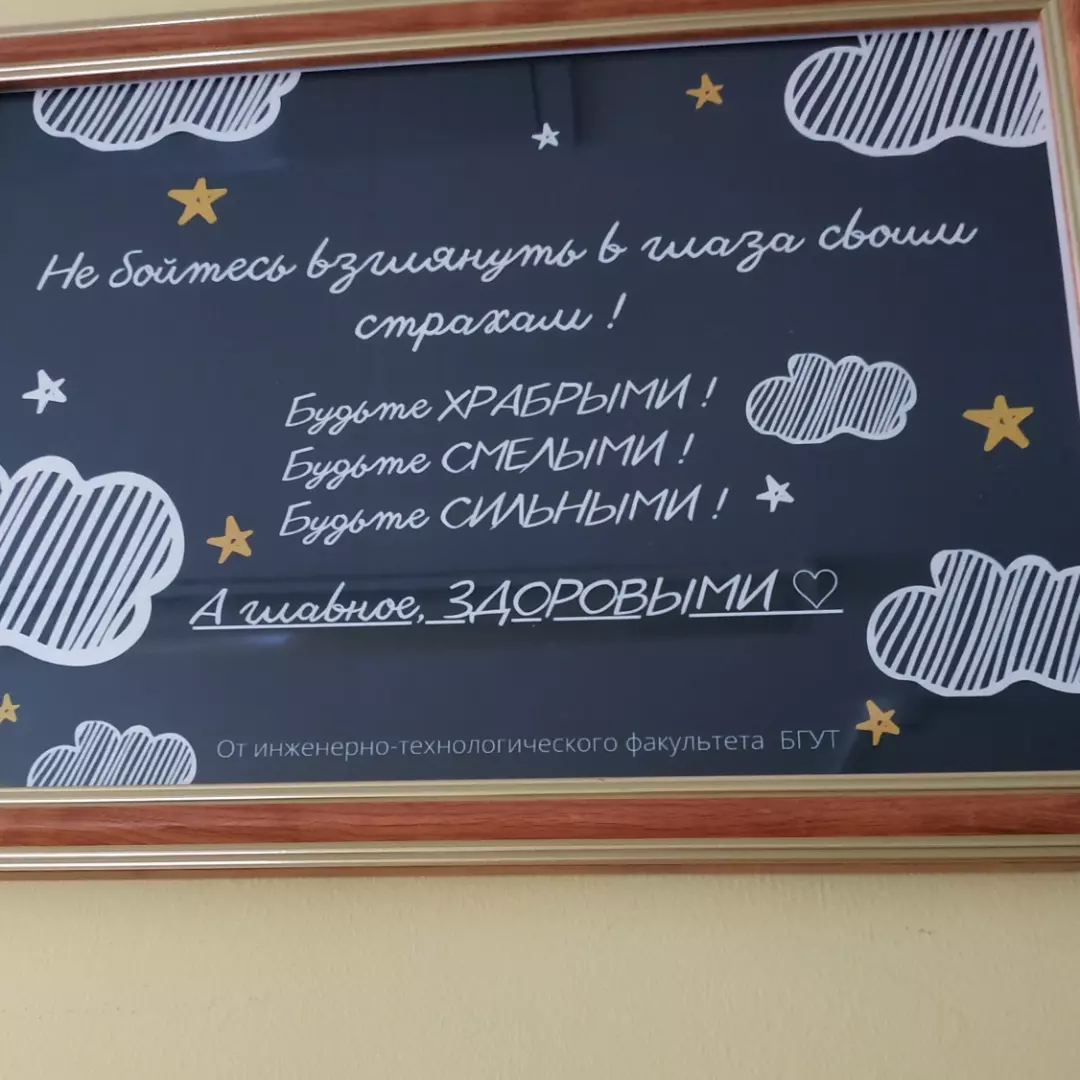 Не бойтесь взглянуть в глаза своим
страхам !
Будьте ХРАБРЫМИ !
Будьте СМЕЛЫМИ !
Будьте СИЛЬНЫМИ !
А главное, ЗДОРОВЫМИ ♡
От инженерно-технологического факультета БГУТ